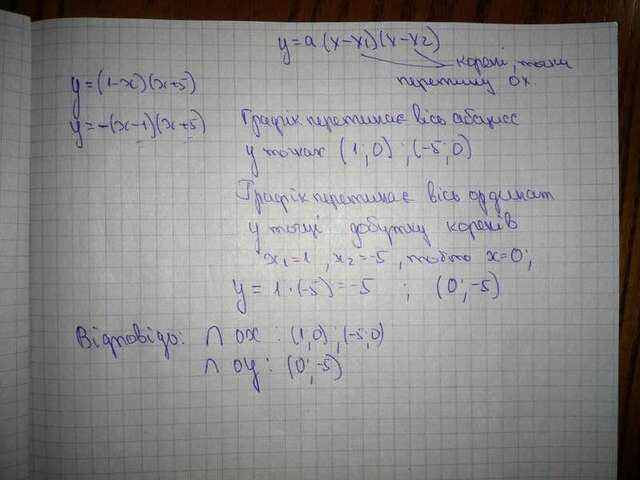 y = (1-x)(x+5)
y = -(x-1)(x+5)
y = a(x-x₁)(x-x₂)
корені, точки
перетину
ox.
Графік перетинає вісь абсцис
у точках (1; 0); (-5; 0)
Графік перетинає вісь ординат
у точці добутку коренів
x₁=1 ; x₂=-5, тобто x=0;
y = 1·(-5) = -5 ; (0;-5)
Відповідь: ∩ ox : (1;0); (-5;0)
∩ oy : (0;-5)